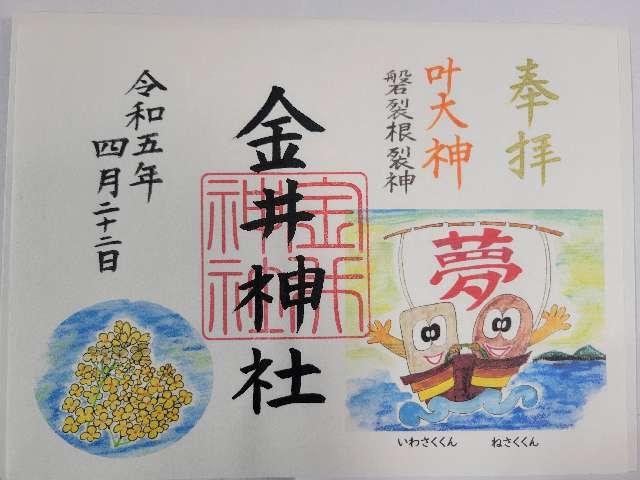 奉拝
叶大神
磐裂根裂神
夢
いわさくくん
ねさくくん
金井神社
金井神社
令和五年
四月二十二日